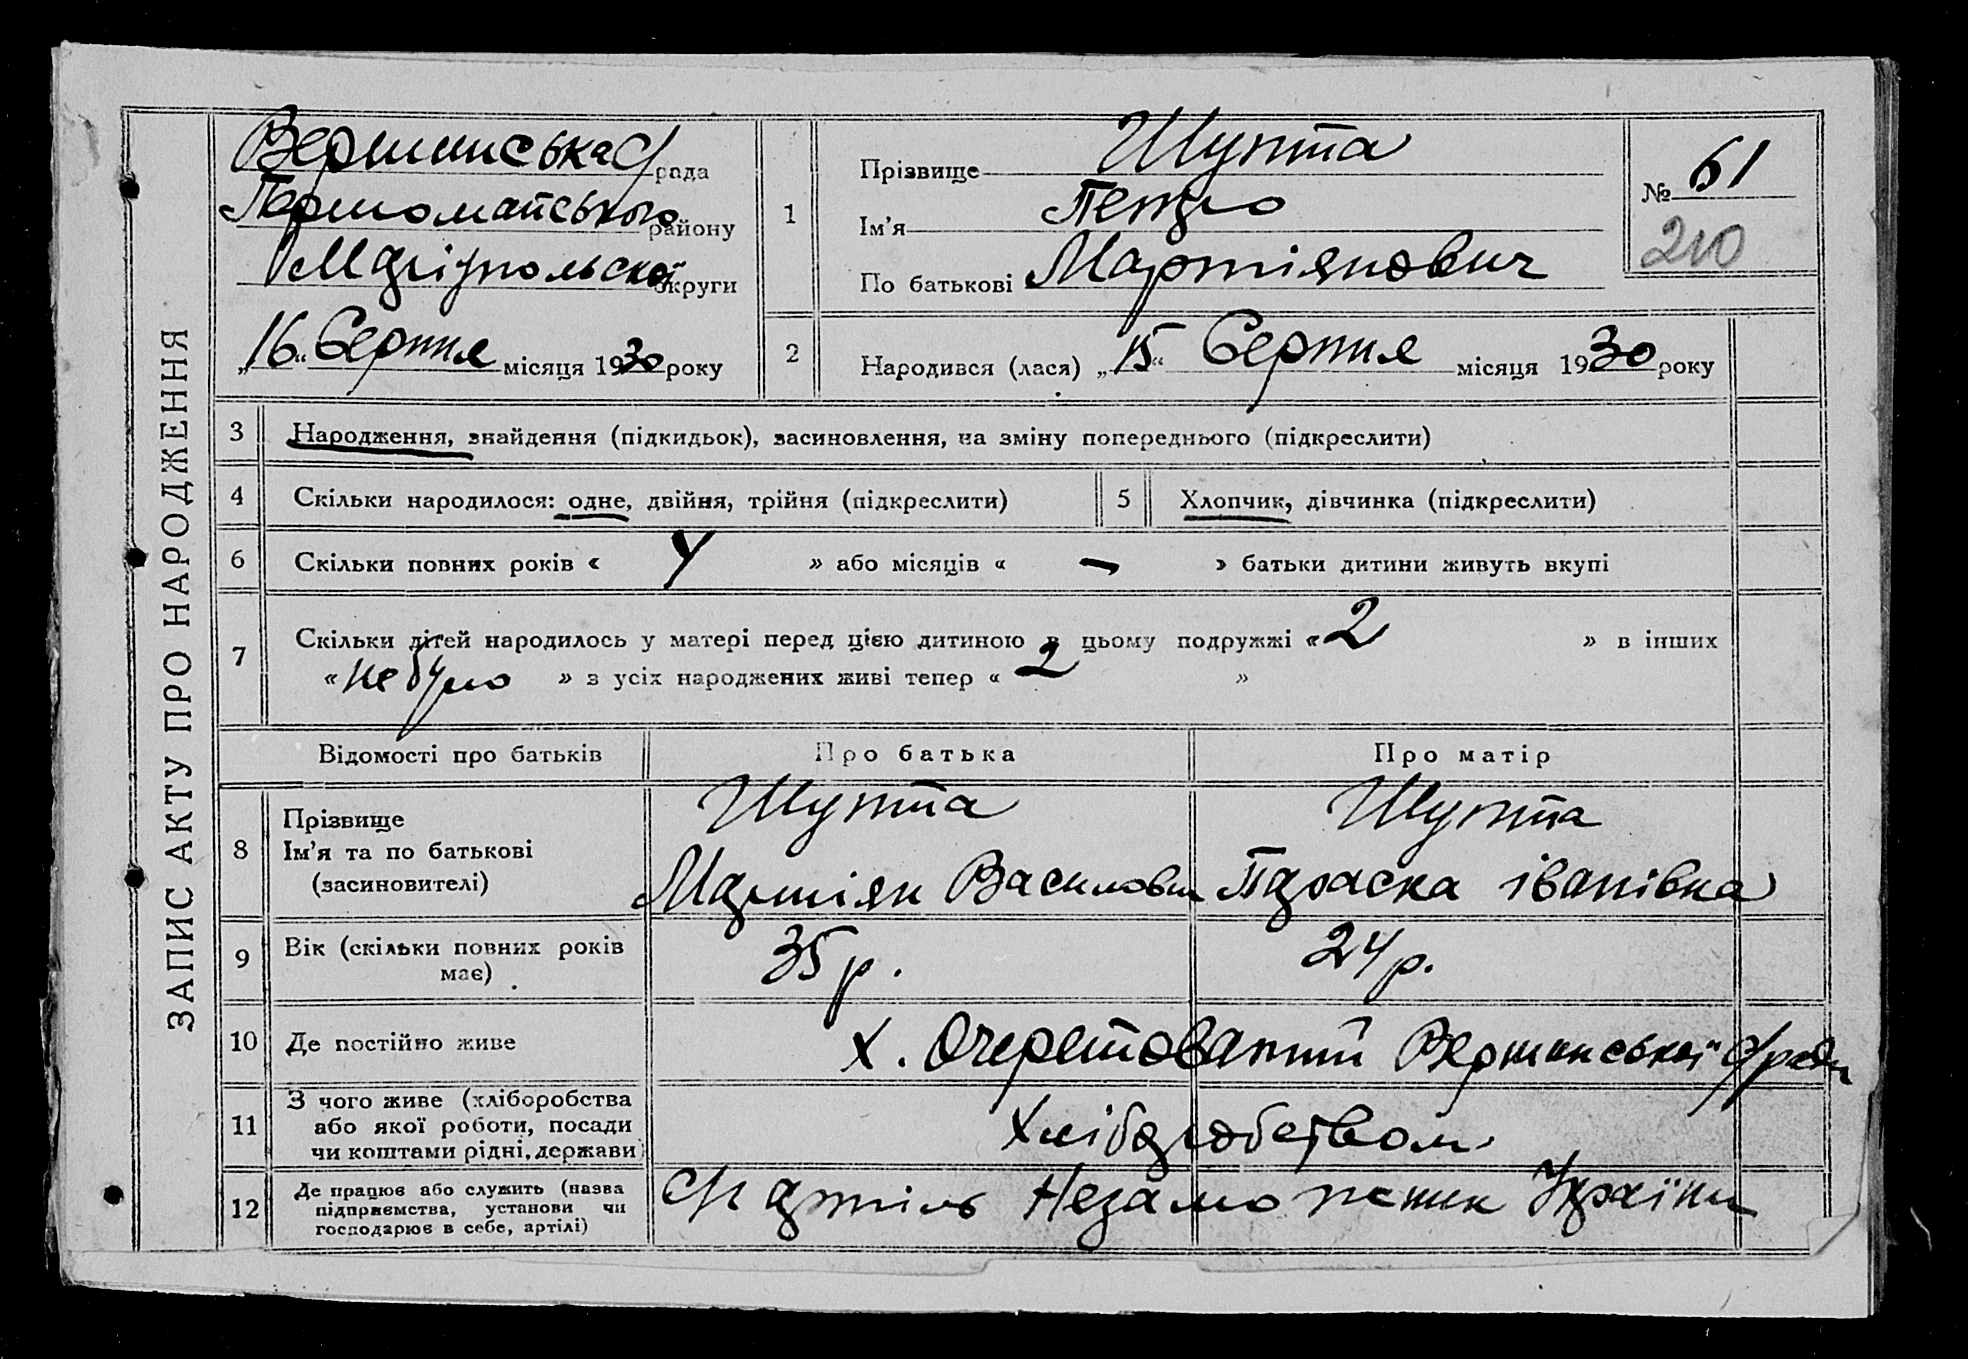 ЗАПИС АКТУ ПРО НАРОДЖЕННЯ
Вершинська С/рада
Першомайського району
Маріупольскої округи
„16“ Серпня місяця 1930 року
1
Прізвище Шупта
Ім'я Петро
По батькові Мартіянович
№ 61
210
2
Народився (лася) „15“ Серпня місяця 1930 року
3 Народження, знайдення (підкидьок), засиновлення, на зміну попереднього (підкреслити)
4 Скільки народилося: одне, двійня, трійня (підкреслити)
5 Хлопчик, дівчинка (підкреслити)
6 Скільки повних років « 4 » або місяців « — » батьки дитини живуть вкупі
7 Скільки дітей народилось у матері перед цією дитиною в цьому подружжі « 2 » в інших
« не було » з усіх народжених живі тепер « 2 »
Відомості про батьків Про батька Про матір
8 Прізвище
Ім'я та по батькові
(засиновителі)
Шупта
Мартіян Василович
Шупта
Параска івановна
9 Вік (скільки повних років
має)
35 р.
24 р.
10 Де постійно живе
х. Очеретоватий Вершинської С/ради
11 З чого живе (хліборобства
або якої роботи, посади
чи коштами рідні, держави
Хліборобством
12 Де працює або служить (назва
підприємства, установи чи
господарює в себе, артілі)
С/г артіль Незаможник України